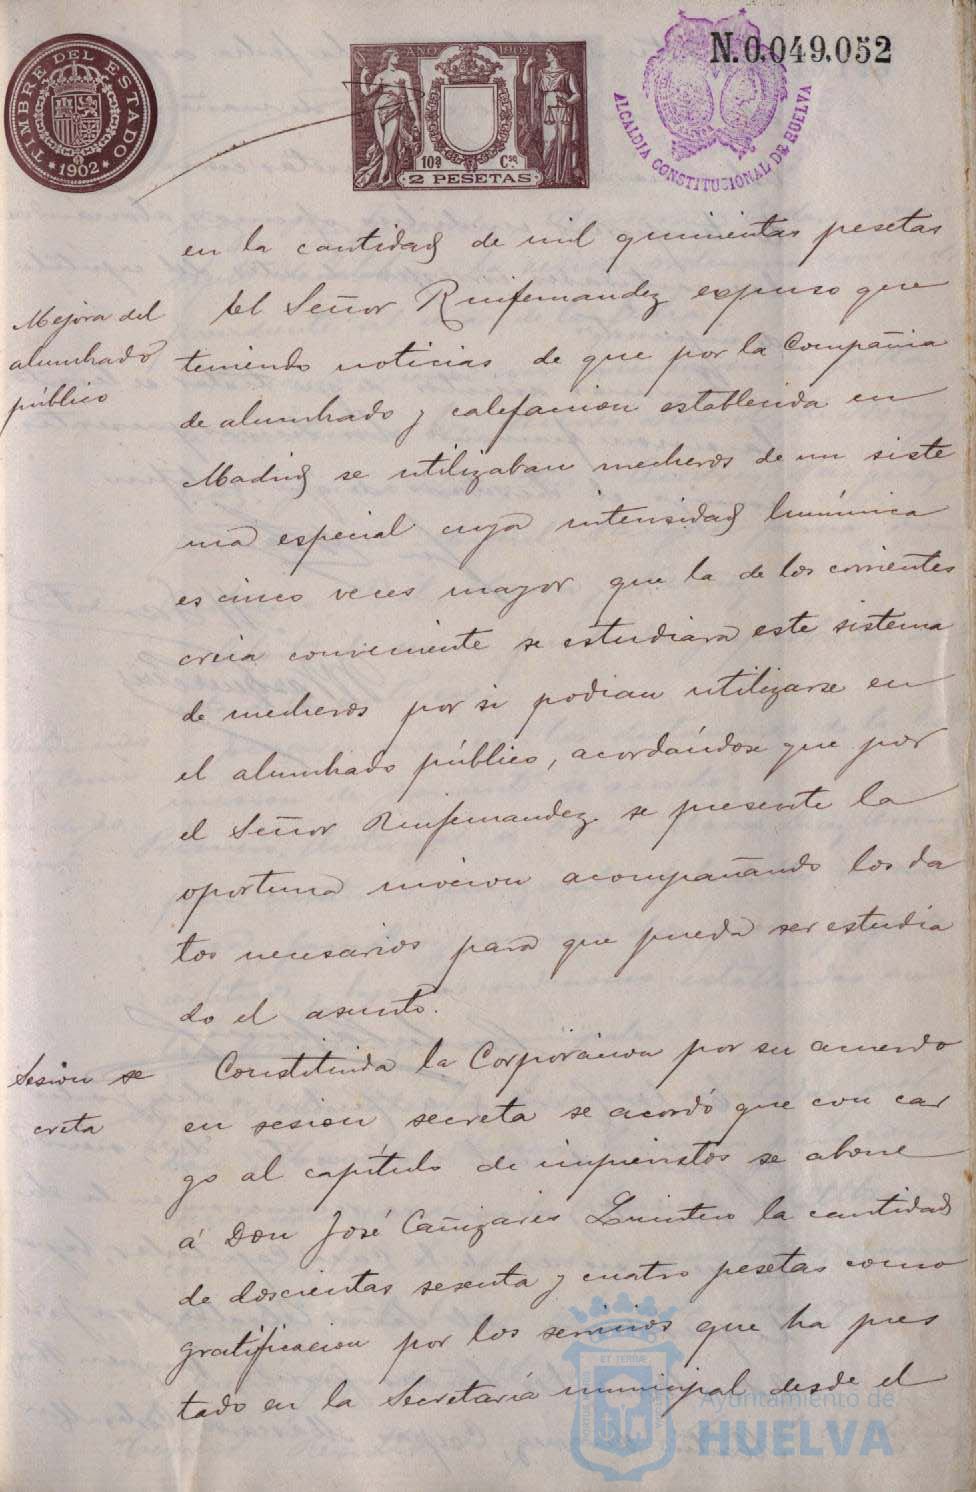 TIMBRE DEL ESTADO
1902
AÑO 1902
10ª Cˢᵉ
2 PESETAS
N.0.049.052
ALCALDIA CONSTITUCIONAL DE HUELVA
en la cantidad de mil quinientas pesetas
Mejora del
alumbrado
público
El Señor Ruifernandez expuso que
teniendo noticias de que por la Compañia
de alumbrado y calefaccion establecida en
Madrid se utilizaban mecheros de un siste
ma especial cuya intensidad lumínica
es cinco veces mayor que la de los corrientes
creia conveniente se estudiara este sistema
de mecheros por si podian utilizarse en
el alumbrado público, acordándose que por
el Señor Ruifernandez se presente la
oportuna mocion acompañando los da
tos necesarios para que pueda ser estudia
do el asunto.
Sesion se
creta
Constituida la Corporacion por su acuerdo
en sesion secreta se acordó que con car
go al capítulo de imprevistos se abone
á Don José Cañizares Quintero la cantidad
de doscientas sesenta y cuatro pesetas como
gratificacion por los servicios que ha pres
tado en la Secretaría municipal desde el
Ayuntamiento de
HUELVA